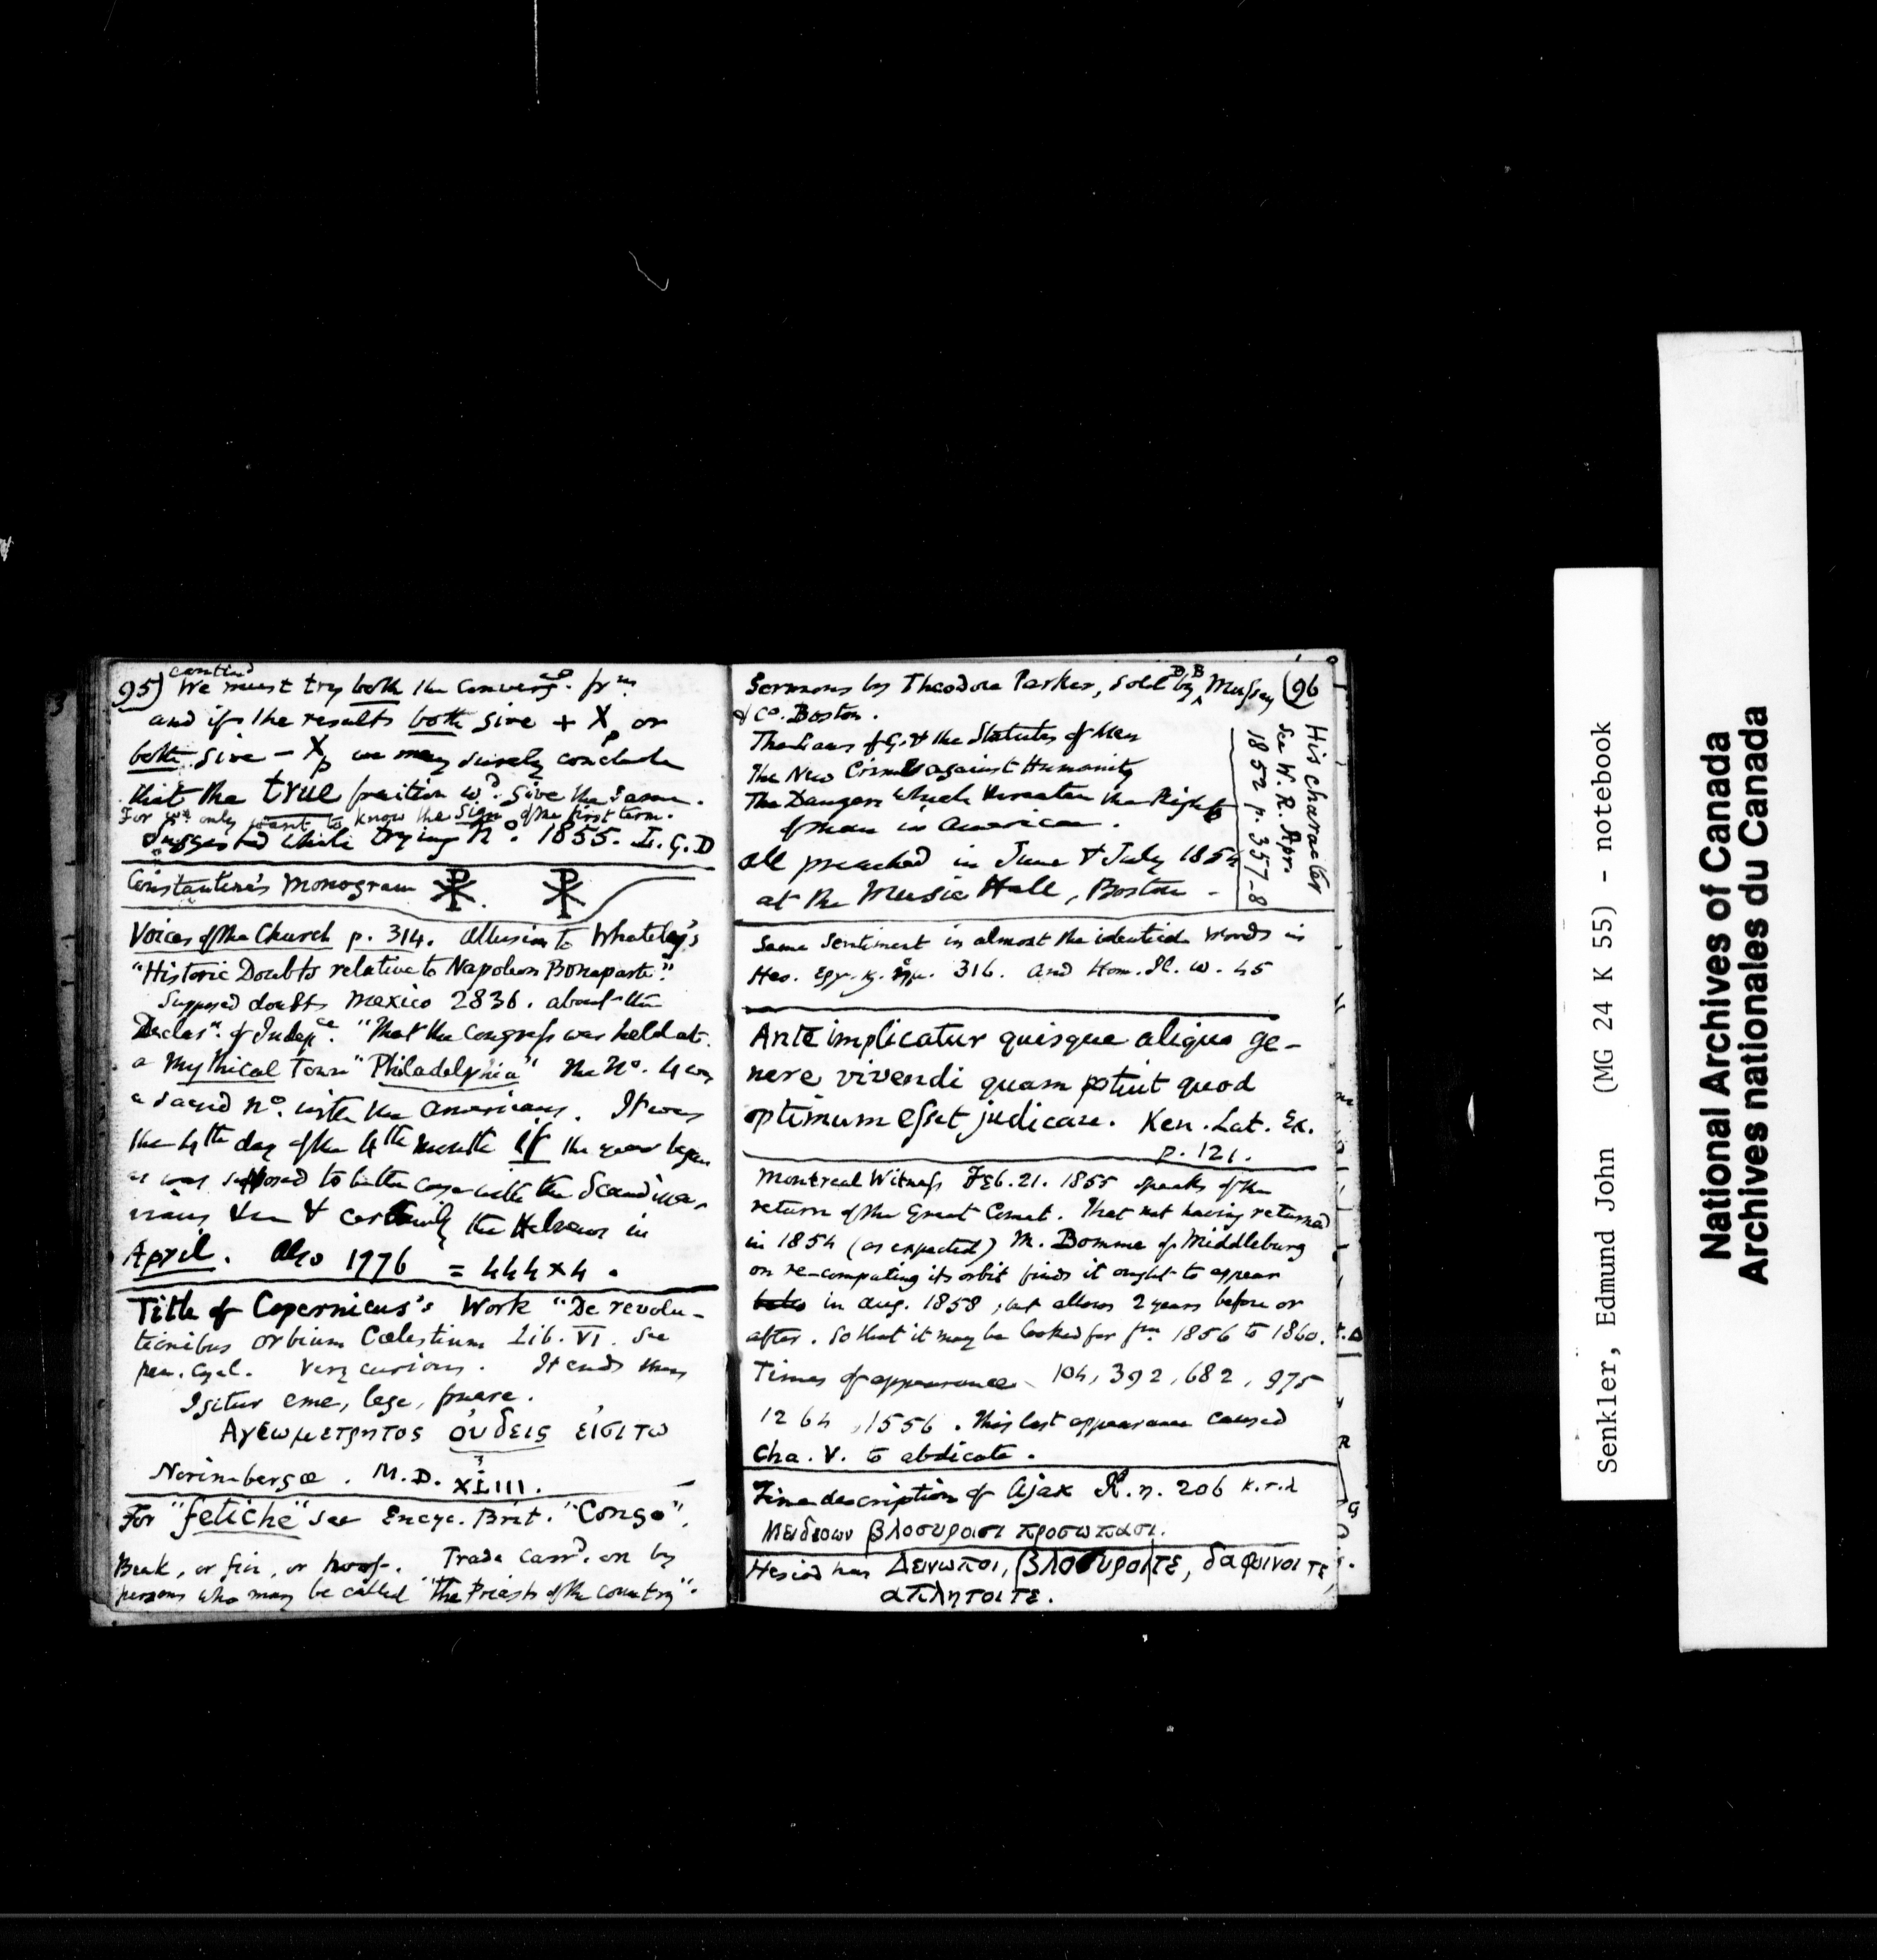 contind
95) We must try both the Converg. frns
and if the results both give + Xp or
both give − Xp we may surely conclude
that the true fraction wd. give the same.
For we only want to know the sign of the first term.
Suggested while trying No. 1855. L. G. D
Constantine's Monogram
Voices of the Church p. 314. Allusion to Whateley's
"Historic Doubts relative to Napoleon Bonaparte".
Supposed doubts Mexico 2836. about the
Declarn. of Indepce. "That the Congress was held at
a Mythical Town "Philadelphia" The No. 4 was
a sacred No. with the Americans. It was
the 4th day of the 4th month if the year began
as was supposed to be the case with the Scandina-
vians & certainly the Hebrews in
April. Also 1776 = 444 x 4.
Title of Copernicus's Work "De revolu-
tionibus orbium Cœlestium Lib. VI. See
pen. Cycl. Very curious. It ends thus
Igitur eme, lege, fruere.
Αγεωμετρητος ουδεις εισιτω
Norimbergæ. M.D. XLIII.
For "fetiche" see Encyc. Brit. "Congo".
Beak, or fin, or hoof. Trade carrd. on by
persons who may be called "the Priests of the country".
Sermons by Theodore Parker, sold by B B Mussey (96
& Co. Boston.
The Laws of G. & the Statutes of Men
The New Crime against Humanity
The Dangers which threaten the Rights
of Man in America.
All preached in June & July 1854
at the Music Hall, Boston -
His character
See W. R. Apr.
1852 p. 357-8
Same sentiment in almost the identical words in
Hes. 316. and Hom. Il. ω. 45
Ante implicatur quisque aliquo ge-
nere vivendi quam potuit quod
optimum esset judicare. Ken. Lat. Ex.
p. 121.
Montreal Witness Feb. 21. 1855 speaks of the
return of the Great Comet. That not having returned
in 1854 (as expected) M. Bomme of Middleburg
on re-computing its orbit finds it ought to appear
in Aug. 1858, but allows 2 years before or
after. So that it may be looked for frm 1856 to 1860.
Times of appearance 104, 392, 682, 975
1264, 1556. This last appearance caused
Cha. V. to abdicate.
Fine description of Ajax Il. η. 206 κ.τ.λ
Μειδιοων βλοσυροισι προσωπασι.
Hesiod has Δεινωποι, βλοσυροι τε, δαφοινοι τε,
απλητοι τε.
Senkler, Edmund John (MG 24 K 55) - notebook
National Archives of Canada
Archives nationales du Canada